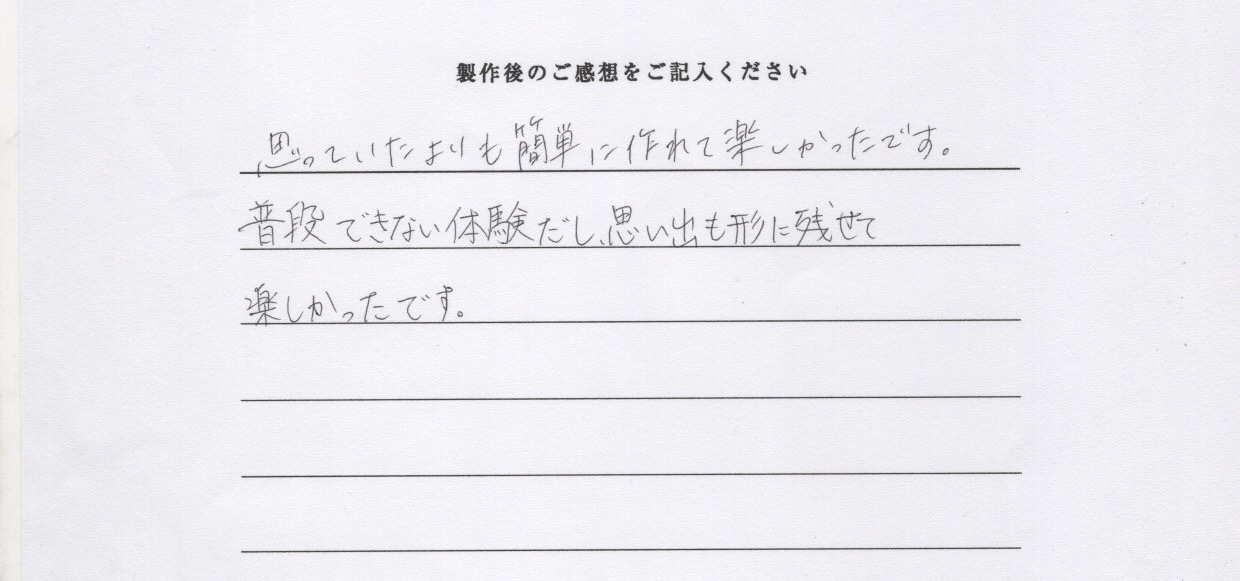 製作後のご感想をご記入ください
思っていたよりも簡単に作れて楽しかったです。
普段できない体験だし、思い出も形に残せて
楽しかったです。